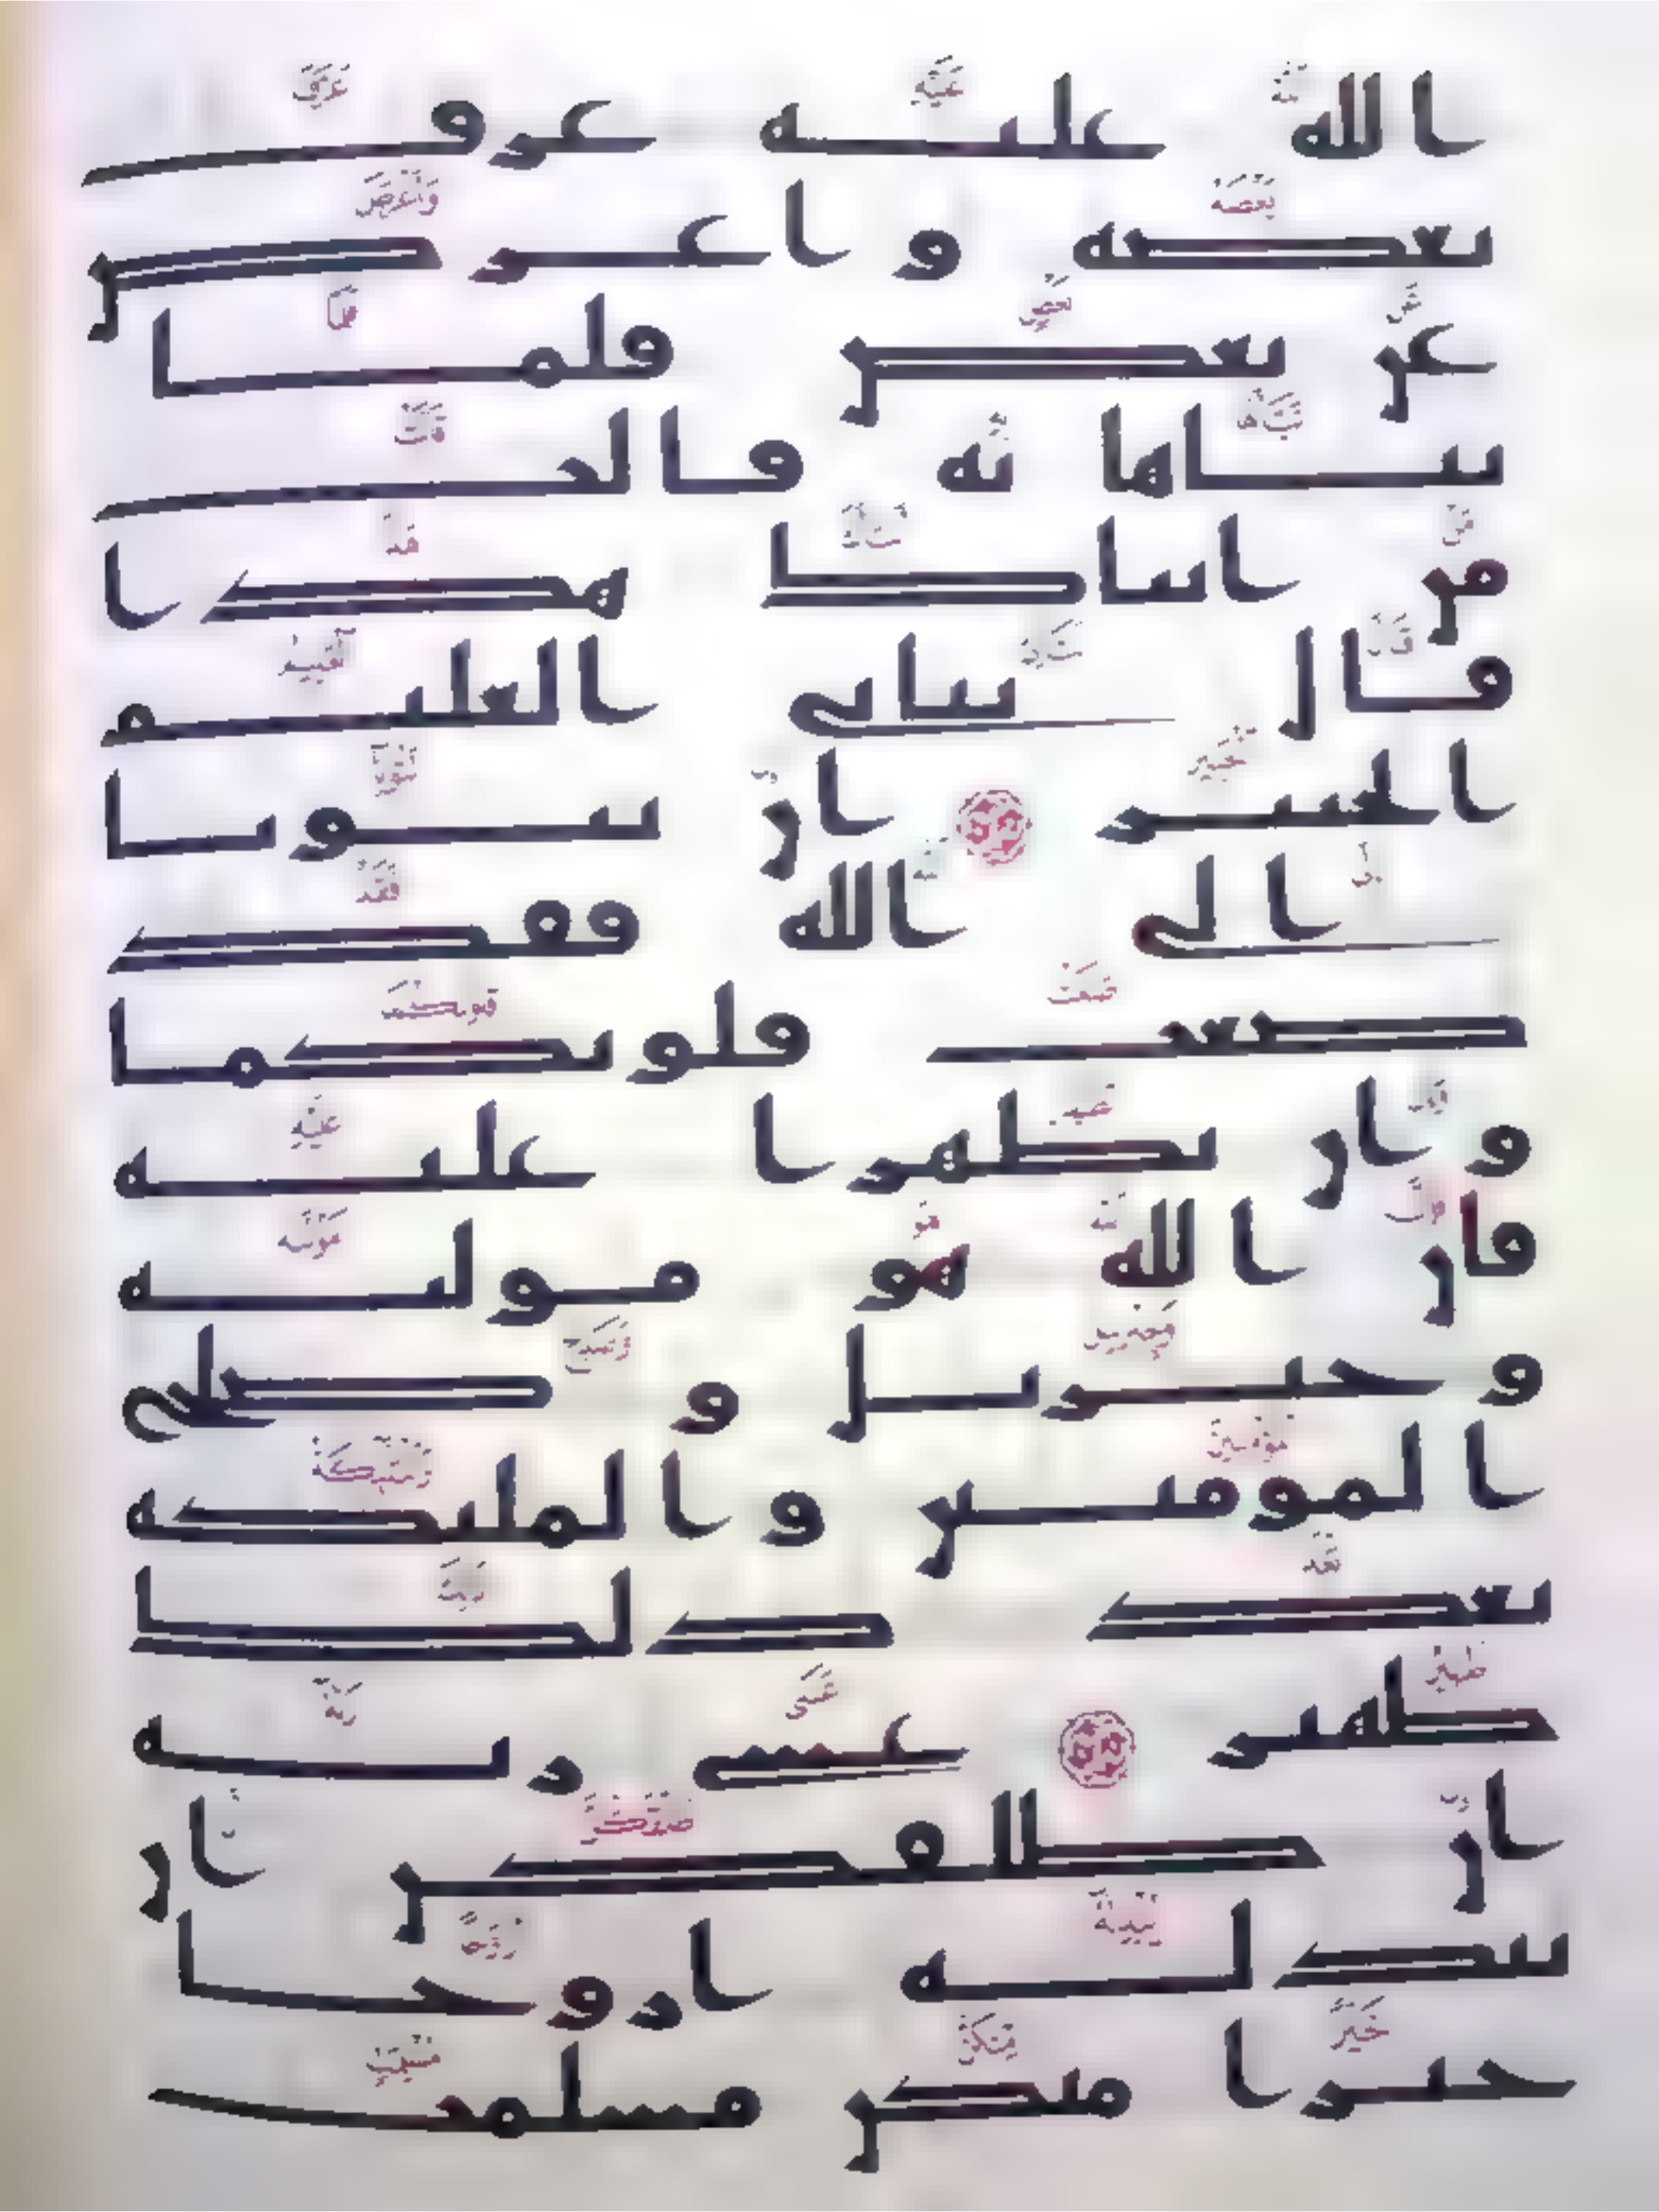 الله عليه عرف
بعضه و اعرض
عن بعض فلما
نباها به قالت
من انباك هذا
قال نبانى العليم
الخبير ان تتوبا
الى الله فقد
صغت قلوبكما
و ان تظهرا عليه
فان الله هو موليه
و جبريل و صلح
المومنين و المليكه
بعد ذلك
ظهير عسى ربه
ان طلقكن ان
يبدله ازوجا
خيرا منكن مسلمت